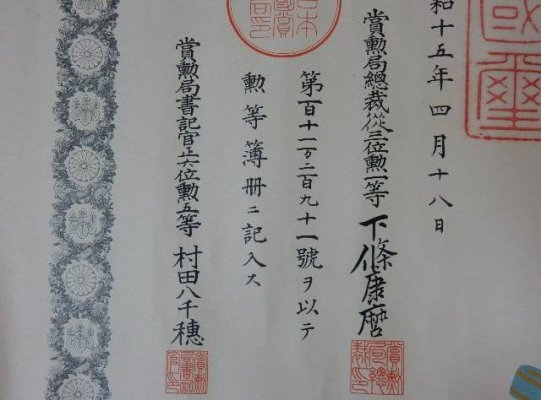 和十五年四月十八日
賞勲局總裁從三位勲一等 下條康麿
第百十一万二百九十一號ヲ以テ
勲等簿册ニ記入ス
賞勲局書記官正六位勲五等 村田八千穗